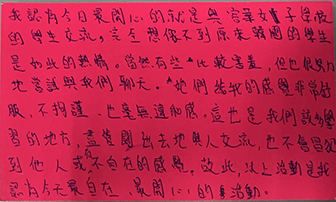 我認為今日最開心的就是與宣華女子學院
的學生交流，完全想像不到原來韓國的學生
是如此的熱情。當然有些人比較害羞，但也很努力
地嘗試與我們聊天。她們給我的感覺非常舒
服，不拘謹，也毫無違和感。這也是我們該學
習的地方，盡管到出去地與人交流，也不會
到他人或不自在的感覺。故此，以上活動是我
認為今天最自在、最開心的活動。